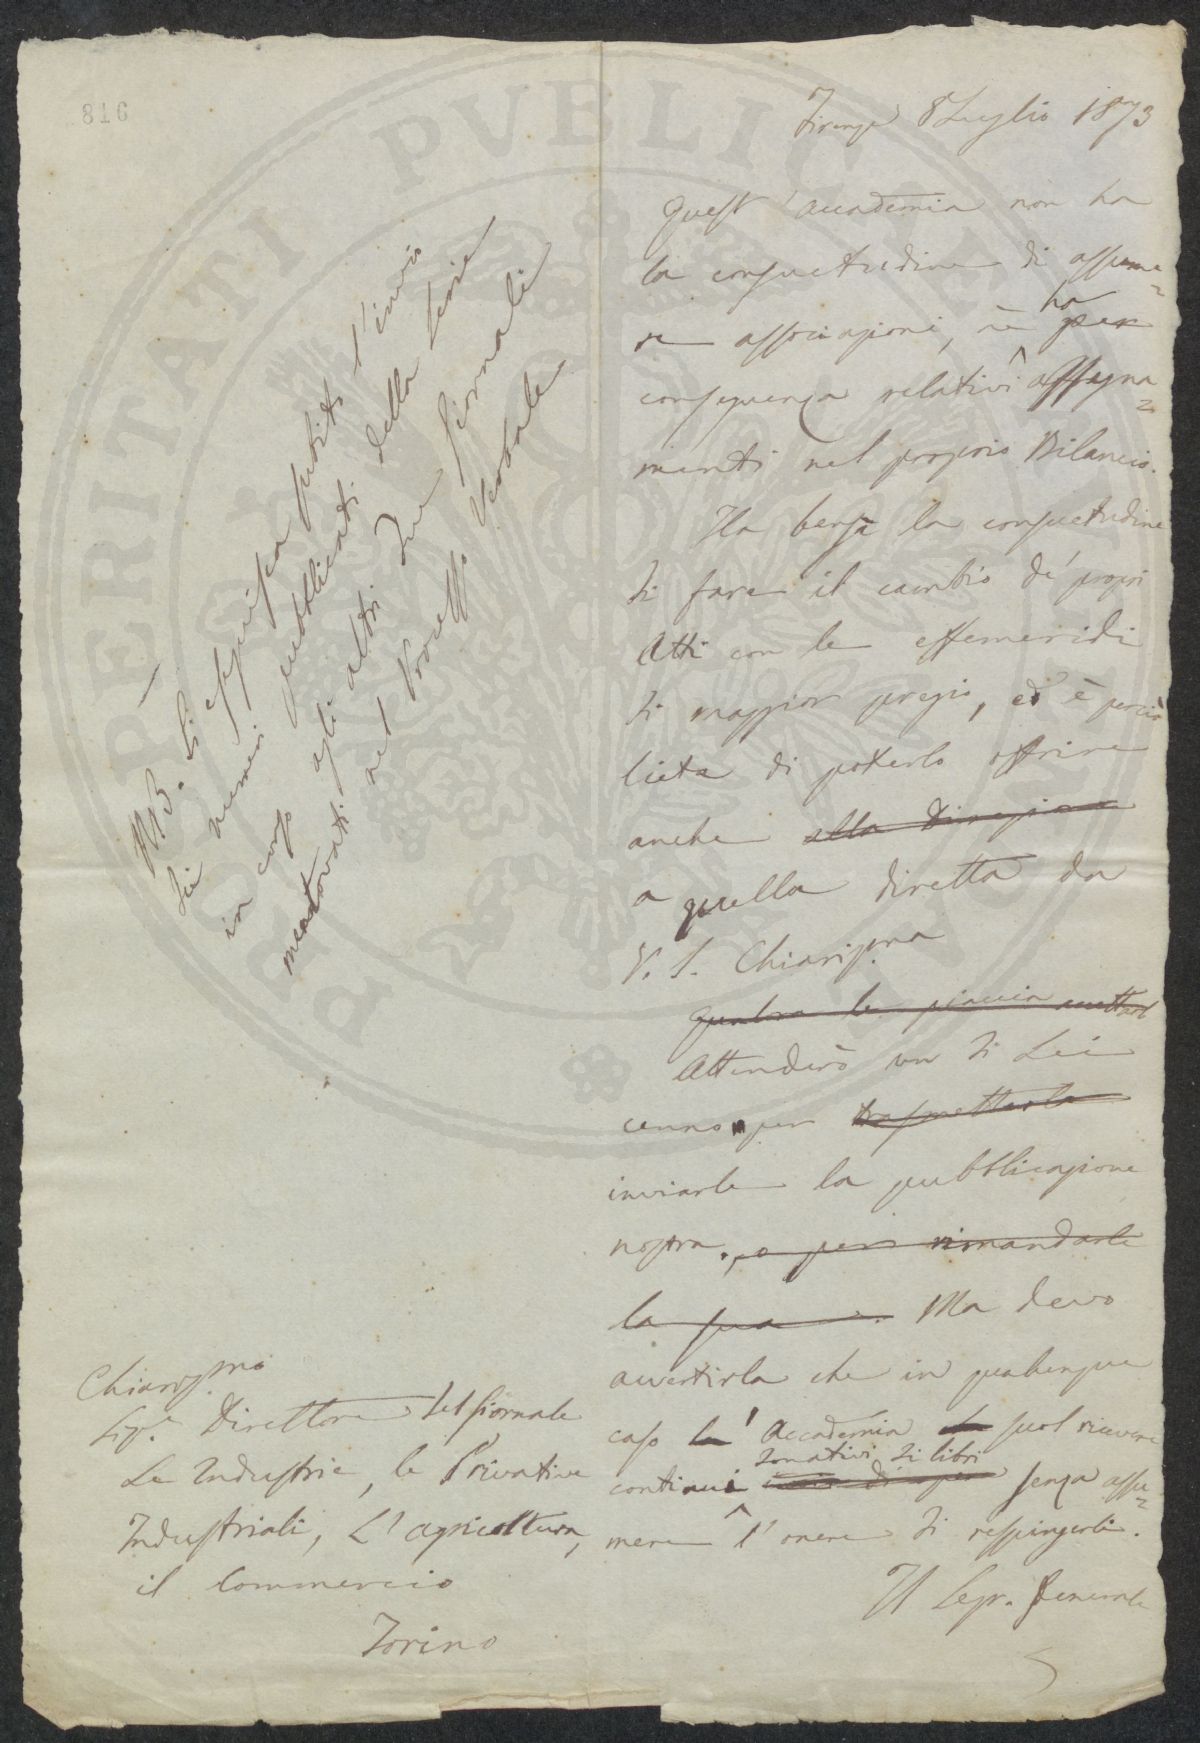 816
Firenze 8 Luglio 1873
Quest'Accademia non ha
la consuetudine di assume=
re associazioni, nè ha per
conseguenza relativi assegna=
menti nel proprio Bilancio.
Ha bensì la consuetudine
di fare il cambio de' propri
Atti con le effemeridi
di maggior pregio, ed è perciò
lieta di poterlo offrire
anche alla Direzione
a quella diretta da
V. S. Chiarissma
Qualora le piaccia accettarlo
Attenderò un di Lei
cenno per
inviarle la pubblicazione
nostra, o per rimandarle
la sua. Ma devo
avvertirla che in qualunque
caso l'Accademia suol ricevere
donativi di libri
continui senza assu=
mere l'onere di respingerli.
Il Segr. Generale
NB. Si eseguisca subito l'invio
dei numeri pubblicati della serie
in corso agli altri due giornali
mentovati nel Processo Verbale
Chiarissmo
Sigr. Direttore del Giornale
Le Industrie, le Privative
Industriali, L'agricoltura,
il Commercio
Torino
PROSPERITATI PVBLICAE